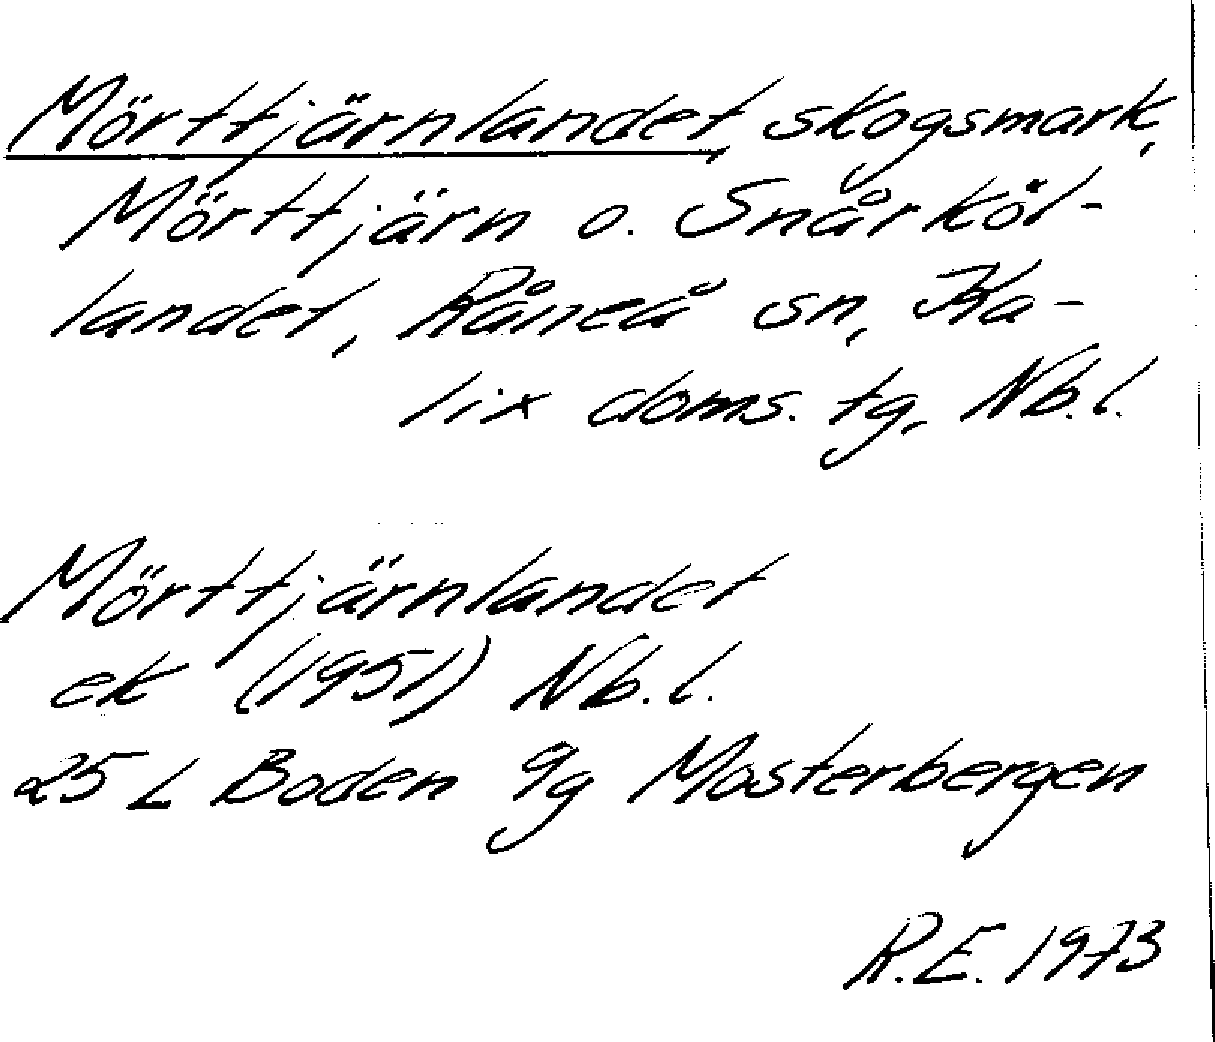 Mörttjärnlandet, skogsmark,
Mörttjärn o. Snårköl-
landet, Råneå sn, Ka-
lix doms. tg, Nb.l.
Mörttjärnlandet
ek (1951) Nb.l.
25 L Boden 9g Mosterbergen
R.E. 1973